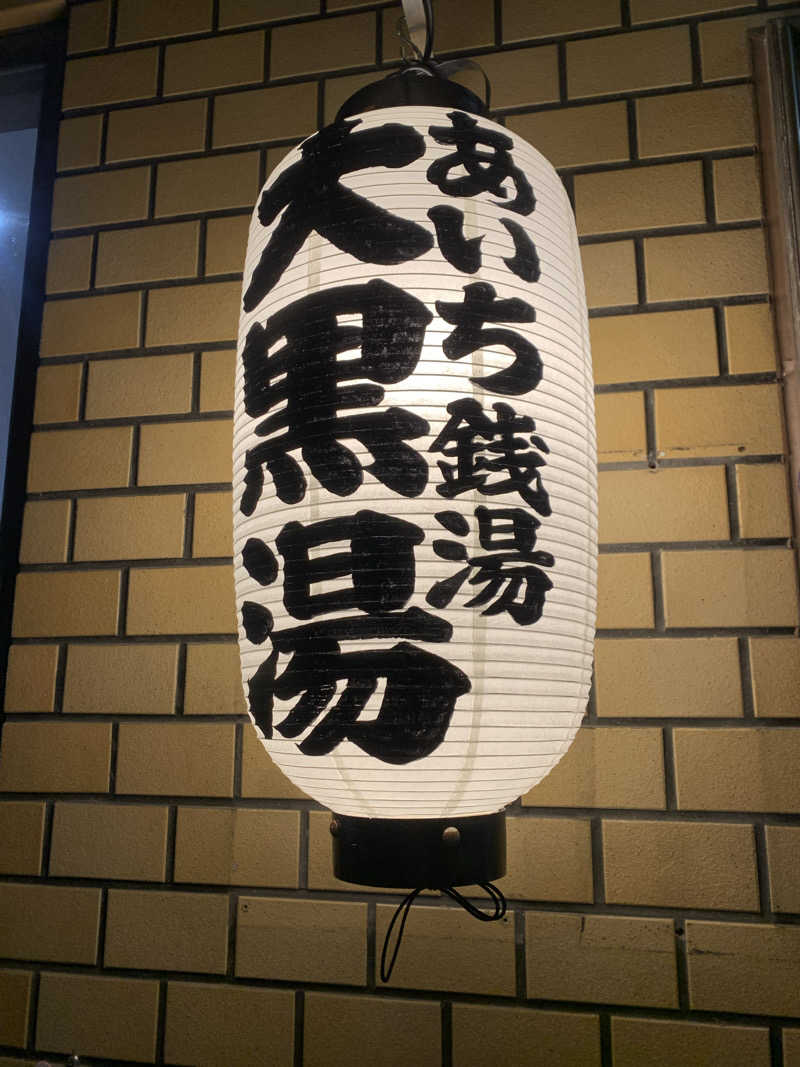 あいち銭湯
大黒湯